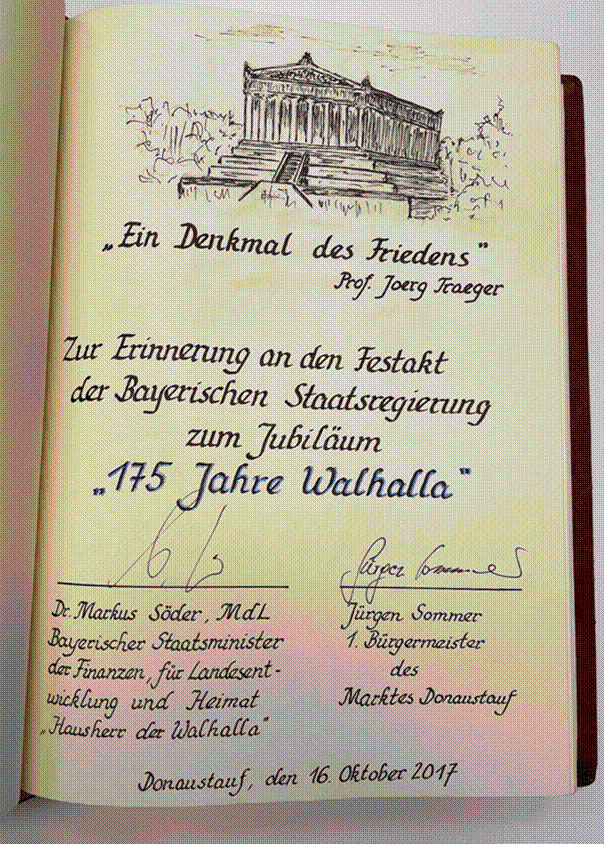 „Ein Denkmal des Friedens"
Prof. Joerg Traeger
Zur Erinnerung an den Festakt
der Bayerischen Staatsregierung
zum Jubiläum
„175 Jahre Walhalla"
Jürgen Sommer
Dr. Markus Söder, MdL
Bayerischer Staatsminister
der Finanzen, für Landesent-
wicklung und Heimat
„Hausherr der Walhalla"
Jürgen Sommer
1. Bürgermeister
des
Marktes Donaustauf
Donaustauf, den 16. Oktober 2017